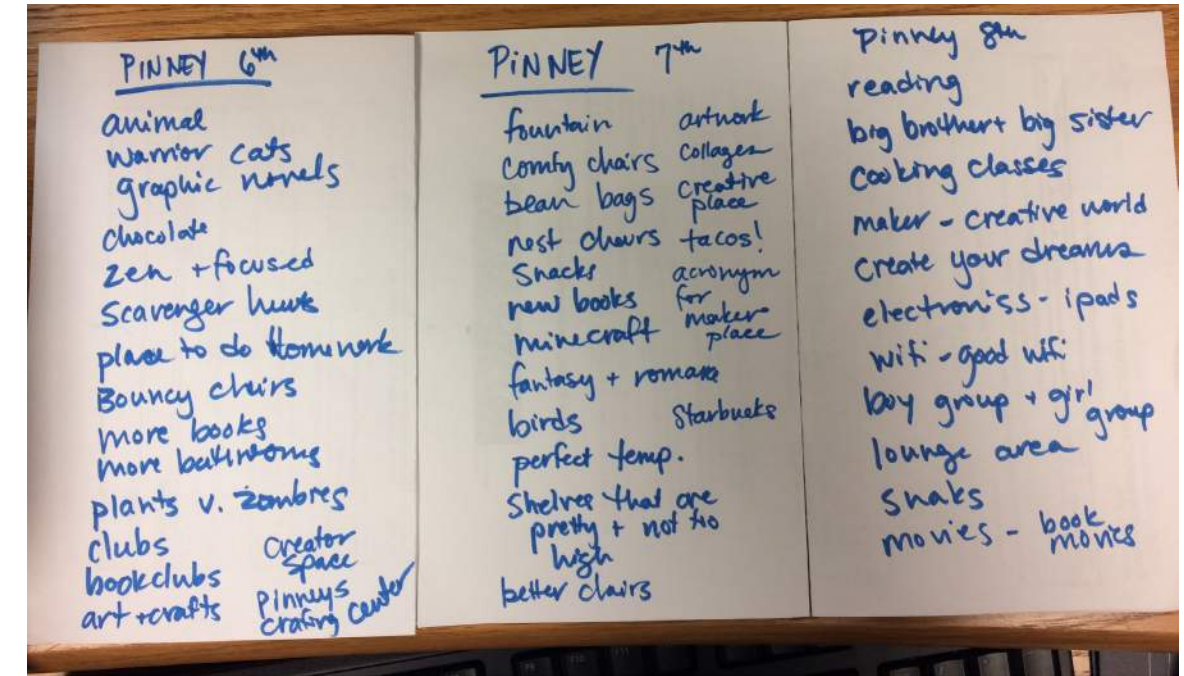 PINNEY 6th
animal
warrior cats
graphic novels
chocolate
zen + focused
Scavenger hunts
place to do Homework
Bouncy chairs
more books
more bathrooms
plants v. zombies
clubs
bookclubs
art + crafts
Creator
Space
Pinneys
crafing center
PINNEY 7th
fountain
comfy chairs
bean bags
nest chairs
Snacks
new books
minecraft
fantasy + romance
birds
perfect temp.
Shelves that are
pretty + not too
high
better chairs
artwork
collages
creative
place
tacos!
acronym
for
maker
place
Starbucks
Pinney 8th
reading
big brother + big sister
cooking classes
maker - creative world
create your dreams
electroniss - ipads
wifi - good wifi
boy group + girl
group
lounge area
snaks
movies - book
movies